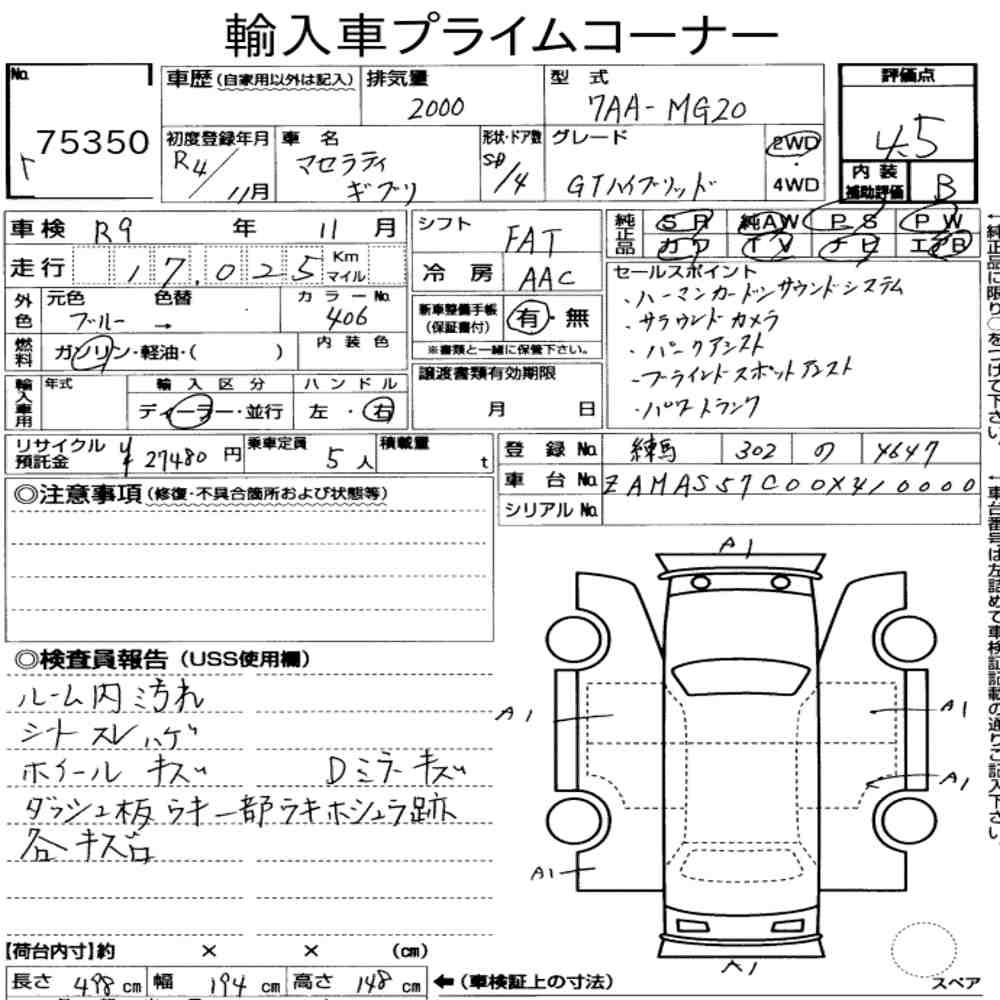 輸入車プライムコーナー
No. 75350
車歴(自家用以外は記入)
排気量 2000
型式 7AA-MG20
評価点 4.5
初度登録年月 R4/11月
車名 マセラティ ギブリ
形状・ドア数 SD/4
グレード GTハイブリッド
2WD・4WD
内装補助評価 B
車検 R9年 11月
シフト FAT
純正品 SR 純AW PS PW
カワ TV ナビ エアB
走行 17,025 Km マイル
冷房 AAC
セールスポイント
・ハーマンカードンサウンドシステム
・サラウンドカメラ
・パークアシスト
・ブラインドスポットアシスト
・パワートランク
外色 元色 ブルー → 色替
カラーNo. 406
新車整備手帳(保証書付) 有・無
※書類と一緒に保管下さい。
燃料 ガソリン・軽油・( )
内装色
譲渡書類有効期限
月 日
輸入車用 年式
輸入区分 ディーラー・並行
ハンドル 左・右
リサイクル預託金 ¥27480円
乗車定員 5人
積載量 t
登録No. 練馬 302 の 4647
車台No. ZAMAS57C00X410000
シリアルNo.
◎注意事項(修復・不具合箇所および状態等)
◎検査員報告(USS使用欄)
ルーム内汚れ
シートスレハゲ
ホイールキズ Dミラーキズ
ダッシュ板ウキ一部ウキホシュウ跡
各キズ凹
A1
A1
A1
A1
A1
A1
【荷台内寸】約 × × (cm)
長さ 498cm 幅 194cm 高さ 148cm
←(車検証上の寸法)
スペア
←純正品に限り○をつけて下さい。
←車台番号は左詰めで車検証記載の通りご記入下さい。